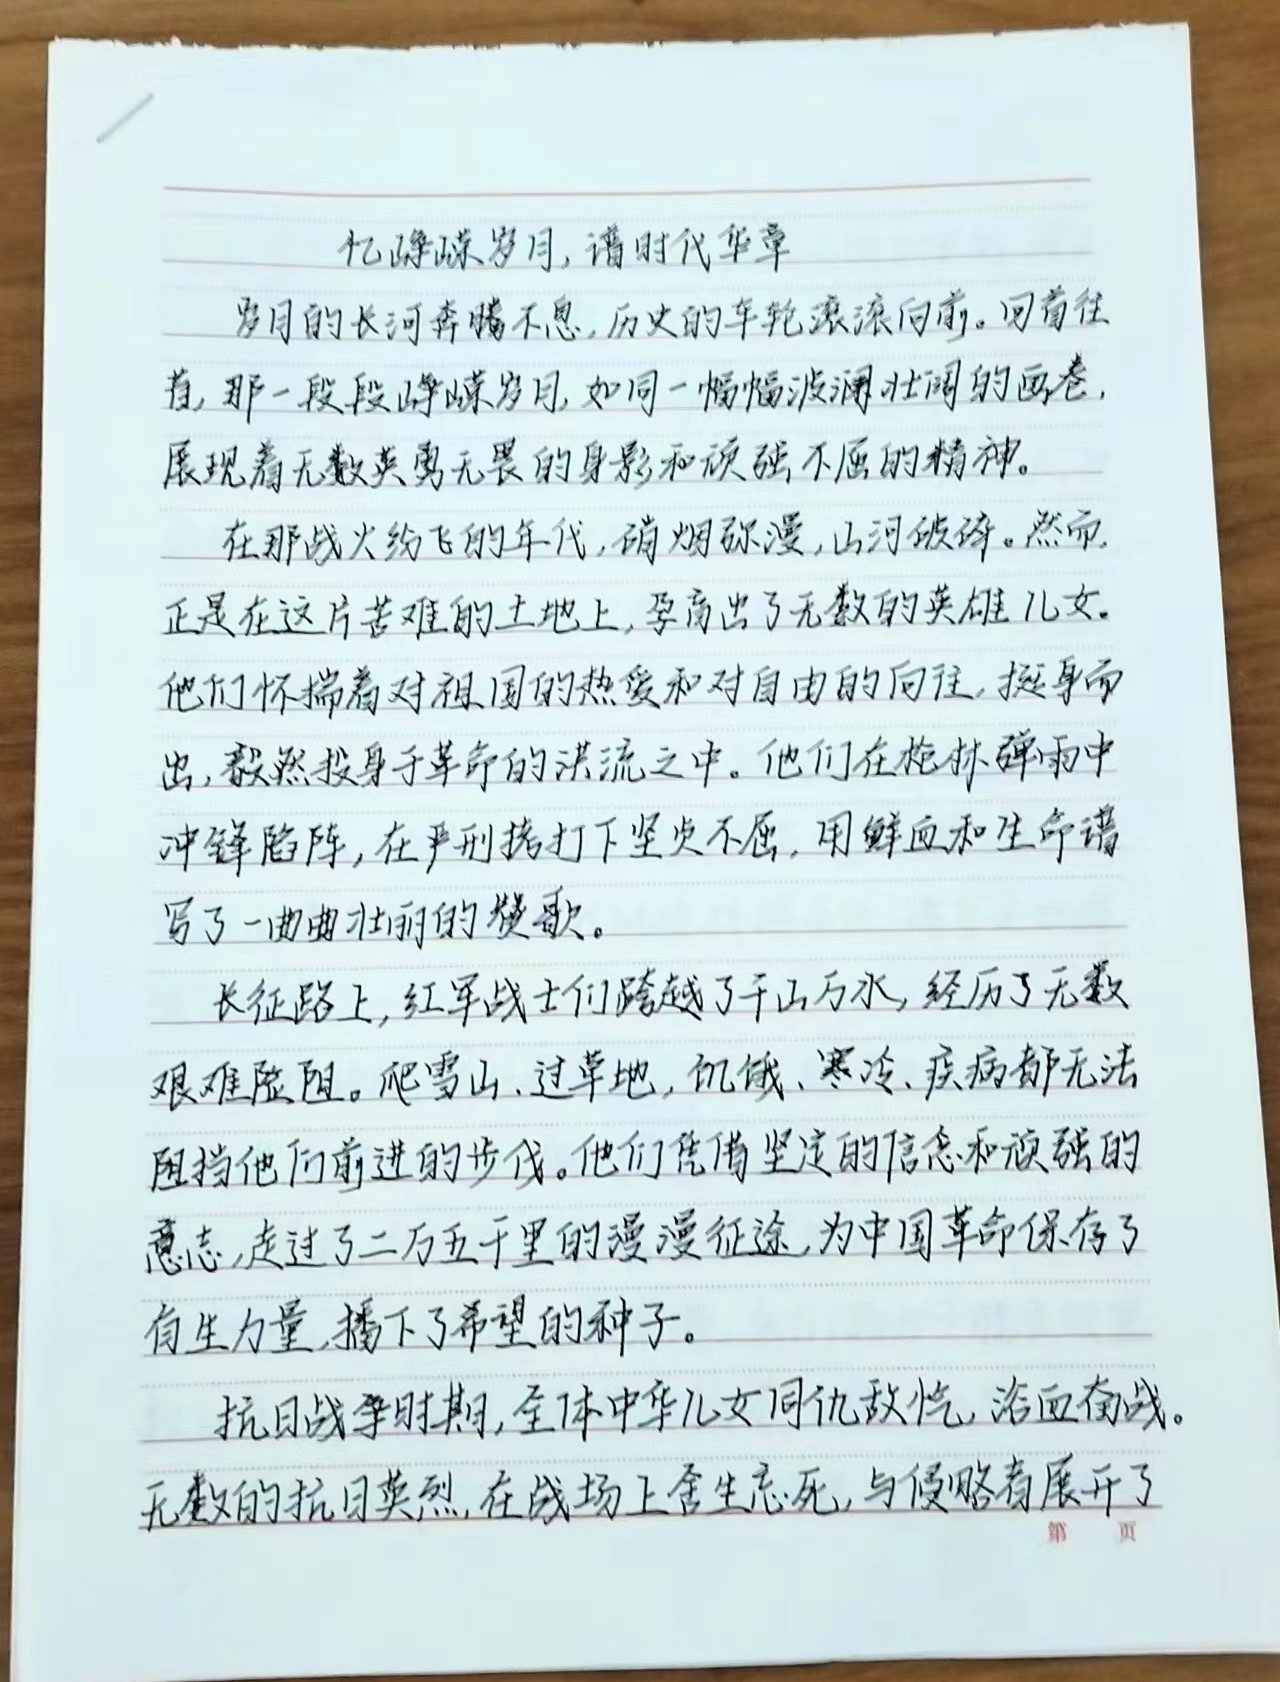 忆峥嵘岁月,谱时代华章
岁月的长河奔腾不息,历史的车轮滚滚向前。回首往
昔,那一段段峥嵘岁月,如同一幅幅波澜壮阔的画卷,
展现着无数英勇无畏的身影和顽强不屈的精神。
在那战火纷飞的年代,硝烟弥漫,山河破碎。然而,
正是在这片苦难的土地上,孕育出了无数的英雄儿女。
他们怀揣着对祖国的热爱和对自由的向往,挺身而
出,毅然投身于革命的洪流之中。他们在枪林弹雨中
冲锋陷阵,在严刑拷打下坚贞不屈,用鲜血和生命谱
写了一曲曲壮丽的赞歌。
长征路上,红军战士们跨越了千山万水,经历了无数
艰难险阻。爬雪山、过草地,饥饿、寒冷、疾病都无法
阻挡他们前进的步伐。他们凭借坚定的信念和顽强的
意志,走过了二万五千里的漫漫征途,为中国革命保存了
有生力量,播下了希望的种子。
抗日战争时期,全体中华儿女同仇敌忾,浴血奋战。
无数的抗日英烈,在战场上舍生忘死,与侵略者展开了
第 页